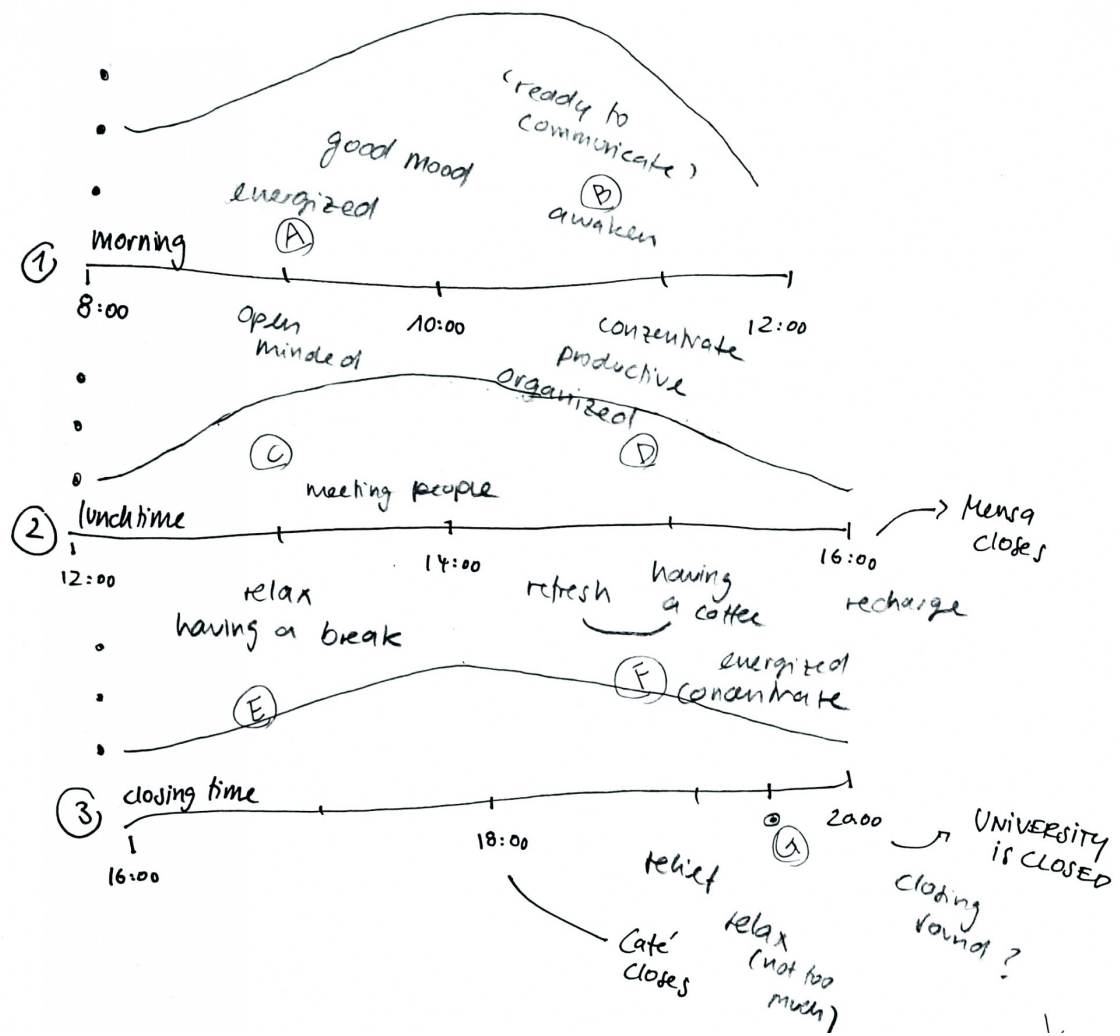 (ready to
communicate)
good mood
energized
A
B
awaken
1 morning
8:00
10:00
12:00
open
minded
conzentrate
productive
organized
C
D
meeting people
2 lunchtime
12:00
14:00
16:00
Mensa
closes
relax
having a break
refresh
having
a coffee
recharge
E
F
energized
concentrate
3 closing time
16:00
18:00
20:00
G
UNIVERSITY
IS CLOSED
closing
round?
relief
relax
(not too
much)
Café
closes